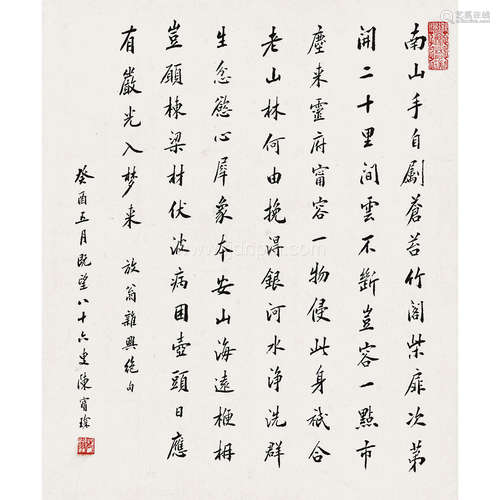 南山手自劚蒼苔竹閣柴扉次第
開二十里澗雲不斷豈容一點市
塵来靈府甯容一物侵此身祇合
老山林何由挽得銀河水淨洗群
生忿慾心犀象本安山海遠梗枏
豈願棟梁材伏波病困壺頭日應
有嚴光入梦来 放翁雜興絕句
癸酉五月既望八十六叟陳寶琛